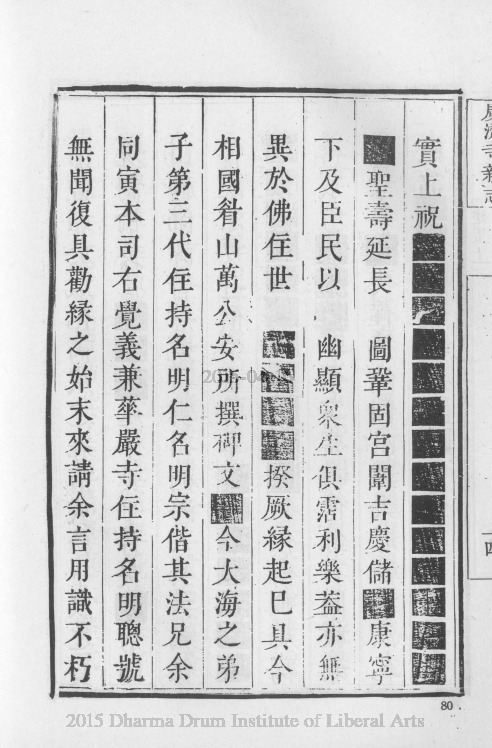 實上祝■■■■■■■■■■■■■■
■聖壽延長 圖鞏固宮闈吉慶儲■康寧
下及臣民以 幽顯衆生俱霑利樂葢亦無
異於佛住世 ■■■■揆厥緣起巳具今
相國眷山萬公安所撰碑文■今大海之弟
子第三代住持名明仁名明宗偕其法兄余
同寅本司右覺義兼華嚴寺住持名明聰號
無聞復具勸緣之始末來請余言用識不朽
四
80
2015 Dharma Drum Institute of Liberal Arts